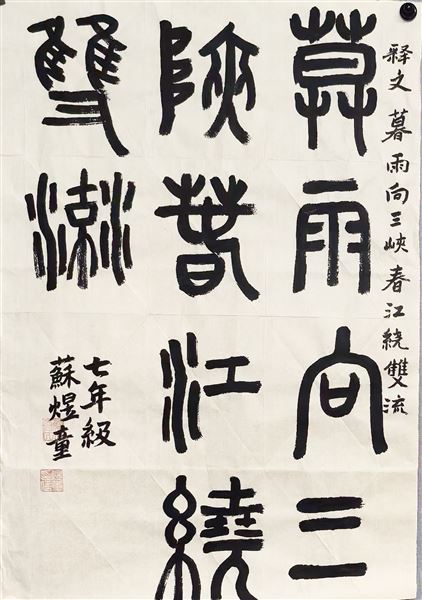 释文 暮雨向三峽春江繞雙流
暮雨向三
峽春江繞
雙流
七年級
蘇煜童